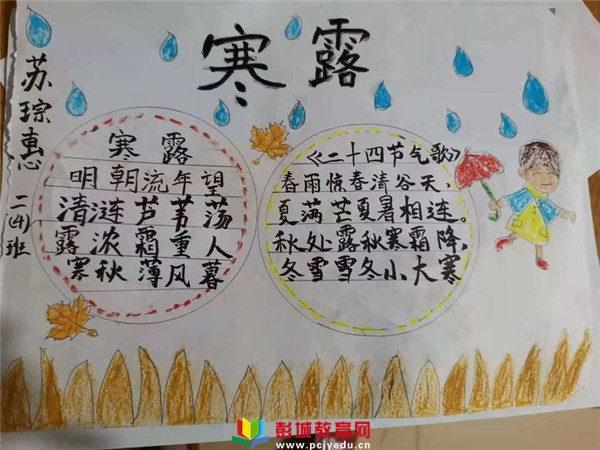 寒露
苏琮惠
二(4)班
寒露
明朝流年望
清涟芦苇荡
露浓霜重人
寒秋薄风暮
《二十四节气歌》
春雨惊春清谷天,
夏满芒夏暑相连。
秋处露秋寒霜降,
冬雪雪冬小大寒
彭城教育网
www.pcjyedu.cn